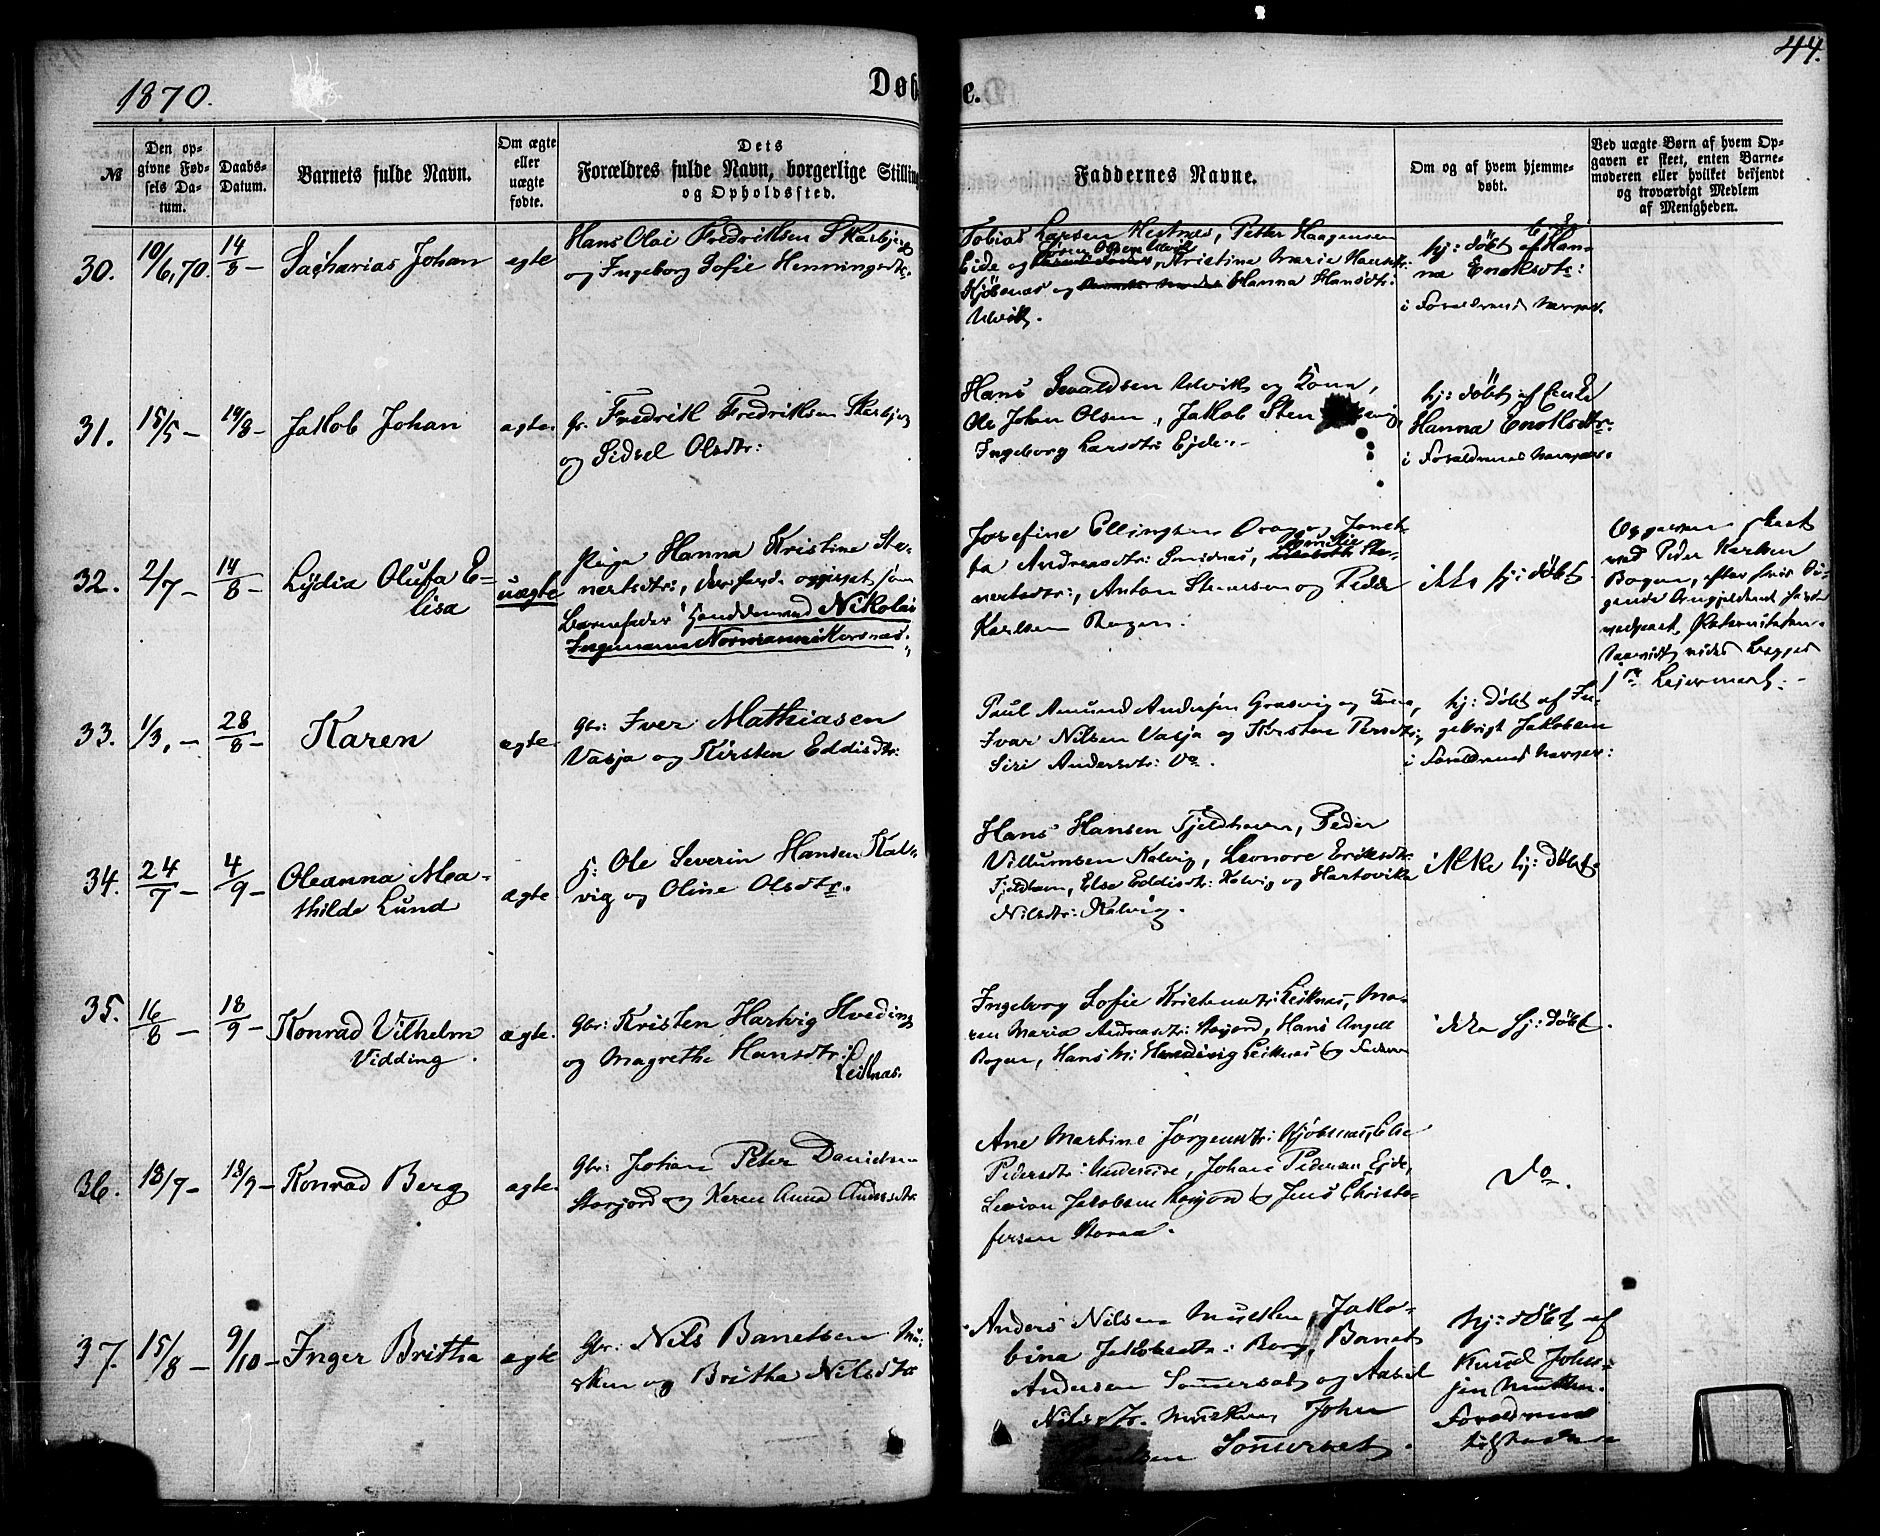 1870.
Døbte.
44.
№
Den opgivne Fødsels Datum.
Daabs-Datum.
Barnets fulde Navn.
Om ægte eller uægte fødte.
Dets Forældres fulde Navn, borgerlige Stilling og Opholdsfted.
Faddernes Navne.
Om og af hvem hjemmedøbt.
Ved uægte Børn af hvem Opgaven er skeet, enten Barnemoderen eller hvilket bekjendt og troværdigt Medlem af Menigheden.
30. 10/6,70. 14/8 – Zacharias Johan ægte
Hans Olai Fredriksen Skarbjerg
og Ingeborg Sofie Henningsdtr:
Tobias Larsen Hestnes, Petter Haagensen
Eide og Kristine Marie Hansdtr:
Kjöbnæs og Hanna Hansdtr:
Ulvik.
hj: döbt af Hanna Enoksdtr:
i Forældrenes Nærvær.
31. 15/5 – 14/8 – Jakob Johan ægte.
Fredrik Fredriksen Skarbjerg
og Sidsel Olsdtr:
Hans Sevaldsen Ulvik og Kone,
Ole Johan Olsen, Jakob Sten
Ingeborg Larsdtr: Ejde.
hj: döbt af Enke
Hanna Enoksdtr:
i Forældrenes Nærvær.
32. 2/7 – 14/8 – Lydia Olufa Elisa uægte
Pige Hanna Kristine Stenertsdtr:, der har opgivet som
Barnefader Nikolai
Ingemann Normann Korsnæs.
Josefine Ellingsen Drag og
Andreasdtr:
Anton Stenersen og Peder
Karlsen Bogen.
ikke hj: döbt.
Opgaven skeet
ved Peder
Bogen, efter
1ste Lejermaal.
33. 1/3, – 28/8 – Karen ægte
Gbr: Iver Mathiasen
Vasja og Kirsten Eddisdtr:
Paul Amund Andersen Græsvig og Kone,
Ivar Nilsen Vasja og Kirsten Persdtr:,
Siri Andersdtr: Do.
hj: döbt af Ingebrigt Jakobsen
i Forældrenes Nærvær:
34. 24/7 – 4/9 – Oleanna Mathilde Lund ægte
Ole Severin Hansen Kalvig og Oline Olsdtr:
Hans Hansen Fjeldhavn, Peder
Villumsen Kalvig, Leonore Eriksdtr:
Else Eddisdtr: Kalvig og Hartovika
Nilsdtr: Kalvig.
ikke hj: döbt.
35. 16/8 – 18/9 – Konrad Vilhelm Vidding. ægte.
Gbr: Kristen Hartvig Hveding
og Magrethe Hansdtr:
Leiknæs.
Ingeborg Sofie Kristensdtr: Leiknæs, Maren Maria Andreasdtr: Storjord, Hans Angell
Bogen, Hans M: Leiknæs og Faderen
ikke hj: döbt.
36. 18/7 – 18/9 – Konrad Berg ægte.
Gbr: Johan Peter Danielsen
Storjord og Karen Anna
Ane Martine Jörgensdtr: Kjöbnæs, Else
Pedersdtr: Johan Pedersen Ejde,
Jakobsen Korjord og Jens Christofersen Storaa.
Do.
37. 15/8 – 9/10 – Inger Britha ægte
Gbr: Nils Banetsen Musken og Britha Nilsdtr
Anders Nilsen Musken, Jakobina Jakobsdtr: Borg, Banet
Andersen Sommerset og
Nilsdtr. Musken, John
Paulsen Sommerset.
hj: döbt af
Knud Johnsen Musken.
Forældrene
tilstede